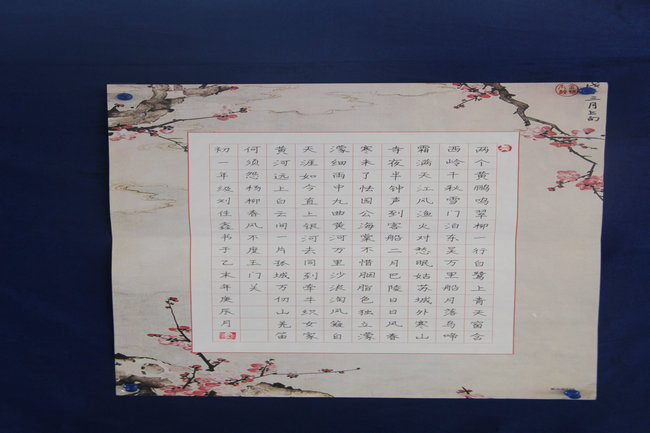 两个黄鹂鸣翠柳一行白鹭上青天窗含
西岭千秋雪门泊东吴万里船月落乌啼
霜满天江风渔火对愁眠姑苏城外寒山
寺夜半钟声到客船二月巴陵日日风春
寒未了怯园公海棠不惜胭脂色独立濛
濛细雨中九曲黄河万里沙浪淘风簸自
天涯如今直上银河去同到牵牛织女家
黄河远上白云间一片孤城万仞山羌笛
何须怨杨柳春风不度玉门关
初一年级刘佳鑫书于乙未年庚辰月